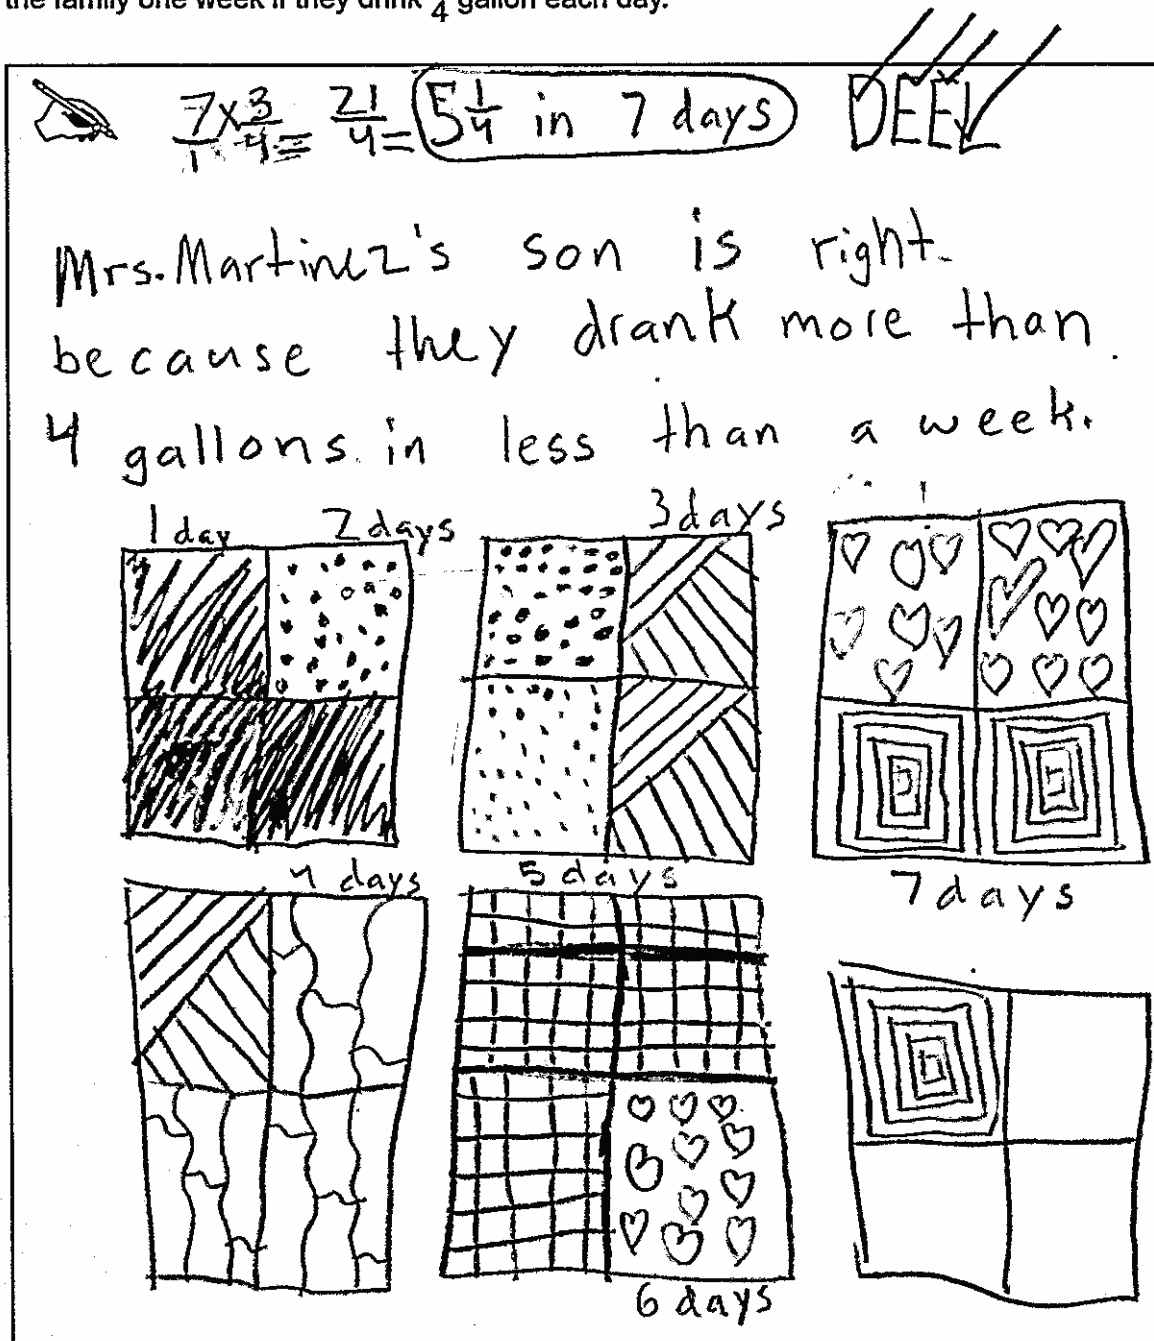 the family one week if they drink 4 gallon each day.
7/1 x 3/4 = 21/4 = 5 1/4 in 7 days DEEL
Mrs. Martinez's son is right.
because they drank more than
4 gallons in less than a week.
1 day 2 days 3 days
4 days 5 days 7 days
6 days